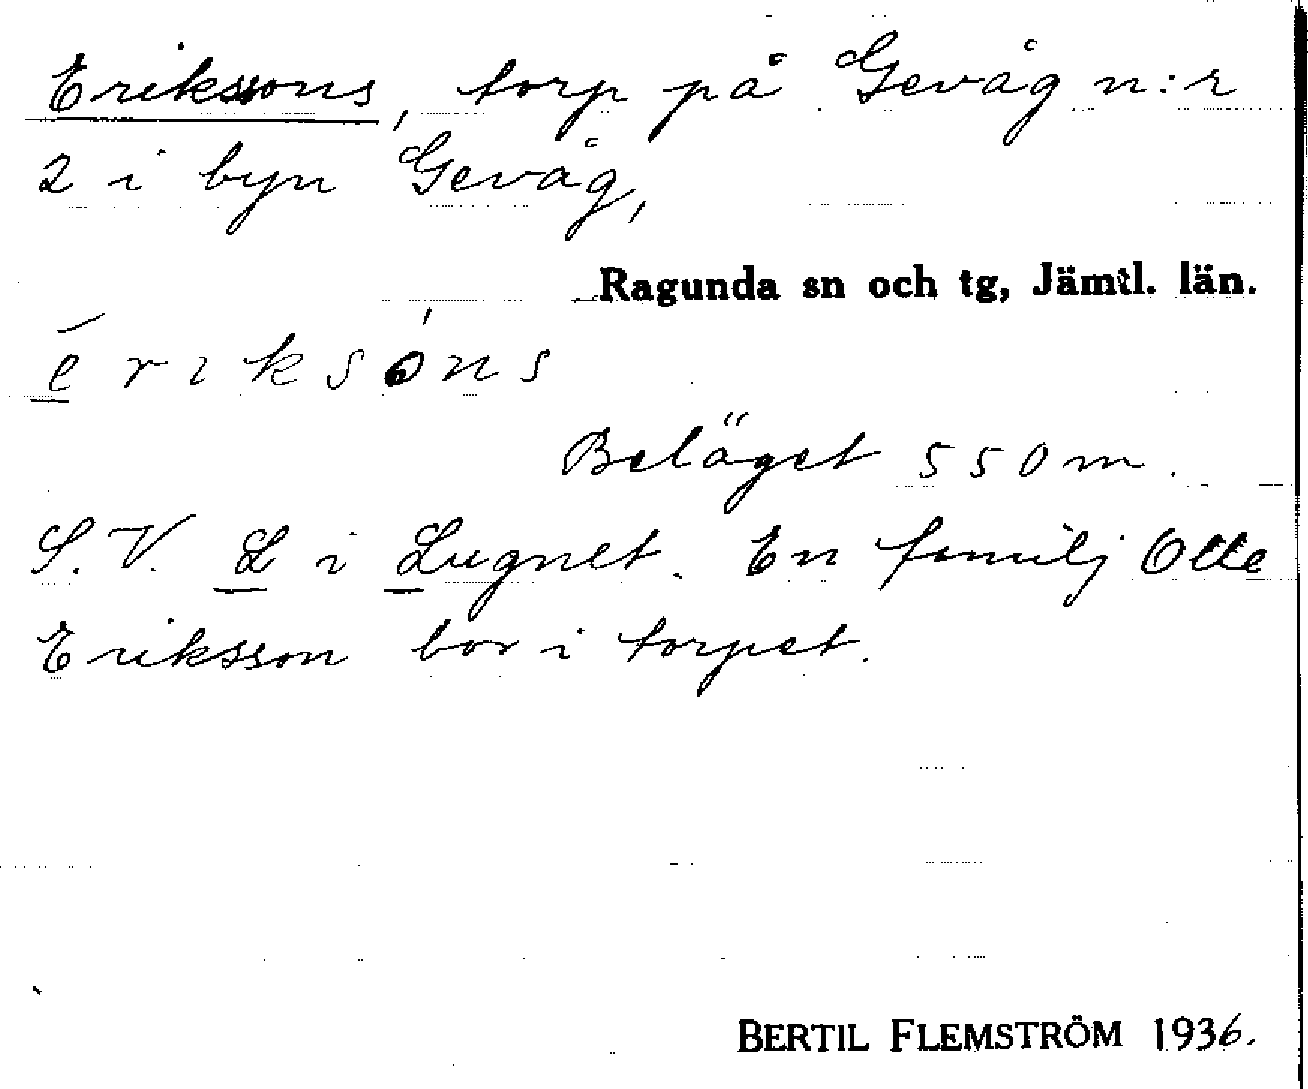 Erikssons, torp på Gevåg n:r
2 i byn Gevåg,
Ragunda sn och tg, Jämtl. län.
é̱ r ı k s ó n s
Beläget 550 m.
S.V. L i Lugnet. En familj Olle
Eriksson bor i torpet.
BERTIL FLEMSTRÖM 1936.